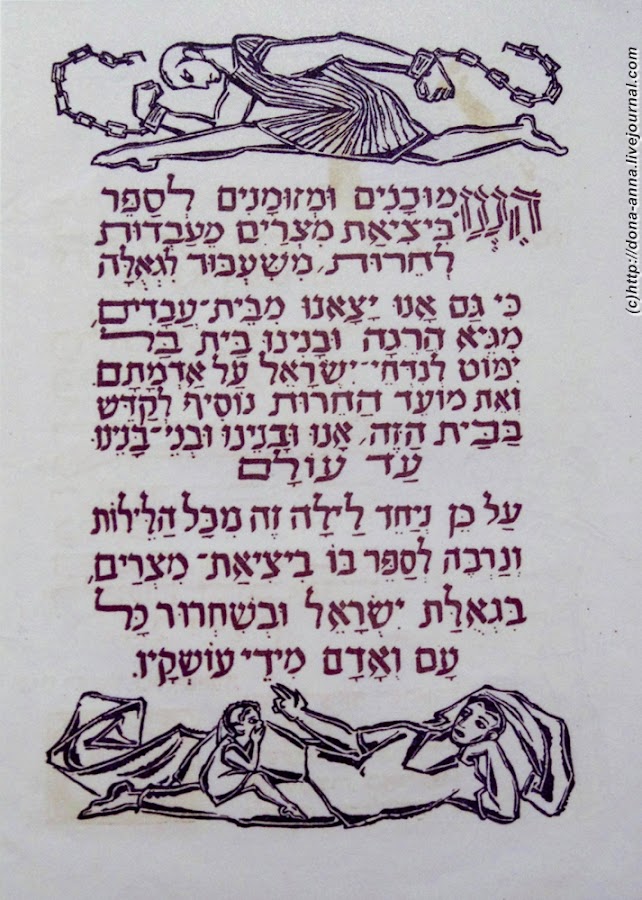 הִנְנוּ מוּכָנִים וּמְזוּמָנִים לְסַפֵּר
בִּיצִיאַת מִצְרַיִם מֵעַבְדוּת
לְחֵרוּת, מִשִּׁעְבּוּד לִגְאֻלָּה
כִּי גַּם אָנוּ יָצָאנוּ מִבֵּית־עֲבָדִים,
מִגֵּיא הֲרֵגָה וּבָנִינוּ בַּיִת בַּל
יִמּוֹט לְנִדְחֵי־יִשְׂרָאֵל עַל אַדְמָתָם.
וְאֶת מוֹעֵד הַחֵרוּת נוֹסִיף לְקַדֵּשׁ
בַּבַּיִת הַזֶּה, אָנוּ וּבָנֵינוּ וּבְנֵי־בָּנֵינוּ
עַד עוֹלָם
עַל כֵּן נְיַחֵד לַיְלָה זֶה מִכָּל הַלֵּילוֹת
וְנַרְבֶּה לְסַפֵּר בּוֹ בִּיצִיאַת־מִצְרַיִם,
בִּגְאֻלַּת יִשְׂרָאֵל וּבְשִׁחְרוּר כָּל
עַם וְאָדָם מִידֵי עוֹשְׁקָיו.
(c)http://dona-anna.livejournal.com